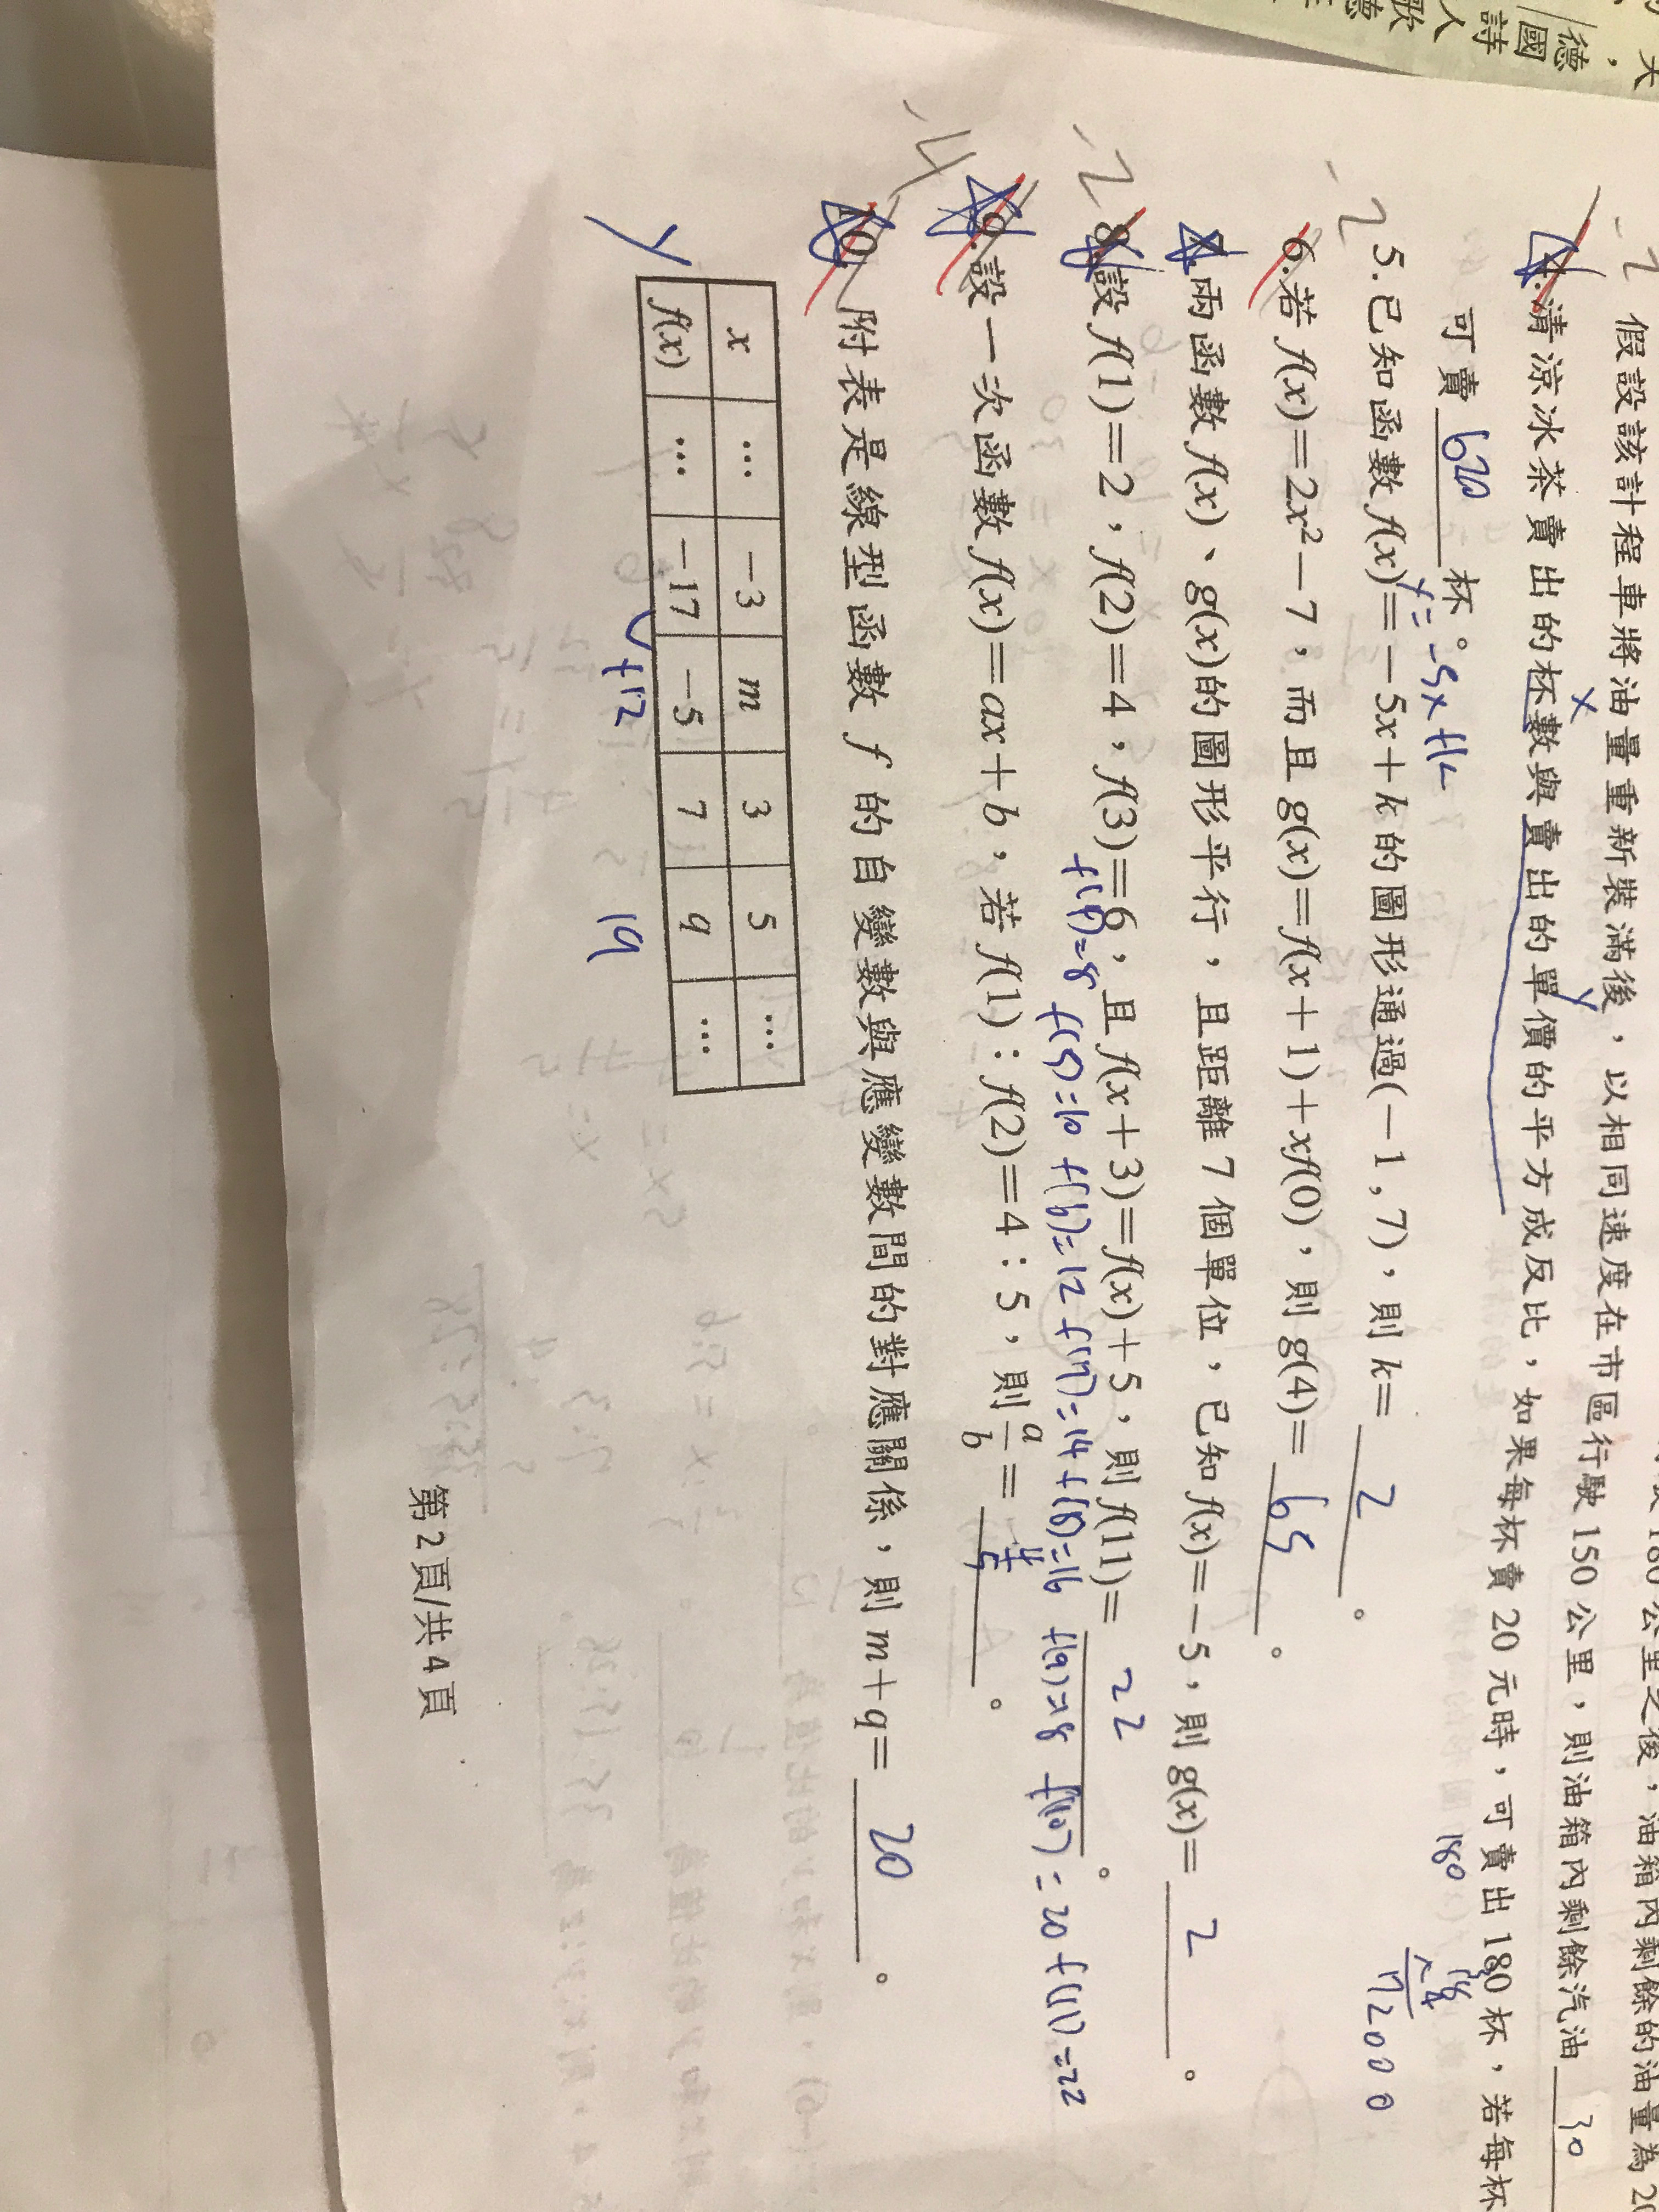 天
，
德
國
詩
人
歌
德
公里之後，油箱內剩餘的油量為20
-2 假設該計程車將油量重新裝滿後，以相同速度在市區行駛150公里，則油箱內剩餘汽油 30
x y
4.清涼冰茶賣出的杯數與賣出的單價的平方成反比，如果每杯賣20元時，可賣出180杯，若每杯
可賣 620 杯。
y=-5x+12
180
72000
-2 5.已知函數f(x)=-5x+k的圖形通過(-1,7)，則k= 2 。
6.若f(x)=2x²-7，而且g(x)=f(x+1)+xf(0)，則g(4)= 65 。
7.兩函數f(x)、g(x)的圖形平行，且距離7個單位，已知f(x)=-5，則g(x)= 2 。
-2 8.設f(1)=2，f(2)=4，f(3)=6，且f(x+3)=f(x)+5，則f(11)= 22 。
f(4)=8 f(5)=10 f(6)=12 f(7)=14 f(8)=16 f(9)=18 f(10)=20 f(11)=22
9.設一次函數f(x)=ax+b，若f(1)：f(2)=4：5，則a/b= 4/5 。
-4 10.附表是線型函數f的自變數與應變數間的對應關係，則m+q= 20 。
x … -3 m 3 5 …
y f(x) … -17 -5 7 q …
+12 19
第2頁/共4頁